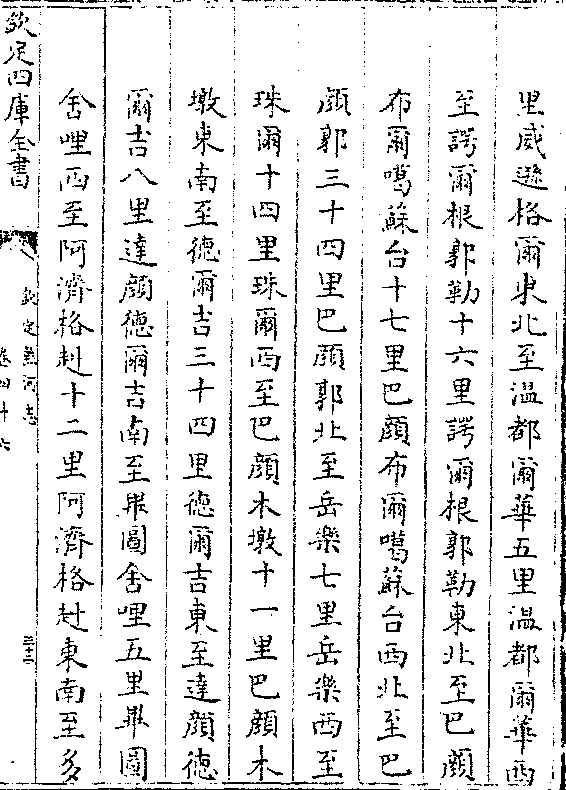 里威遜格爾東北至溫都爾華五里溫都爾華西
至諤爾根郭勒十六里諤爾根郭勒東北至巴顔
布爾噶蘇台十七里巴顔布爾噶蘇台西北至巴
顔郭三十四里巴顔郭北至岳樂七里岳樂西至
珠爾十四里珠爾西至巴顔木墩十一里巴顔木
墩東南至德爾吉三十四里德爾吉東至達顔德
爾吉八里達顔德爾吉南至畢圖舍哩五里畢圖
舍哩西至阿濟格赳十二里阿濟格赳東南至多
欽定四庫全書
欽定熱河志
卷四十六
二十二